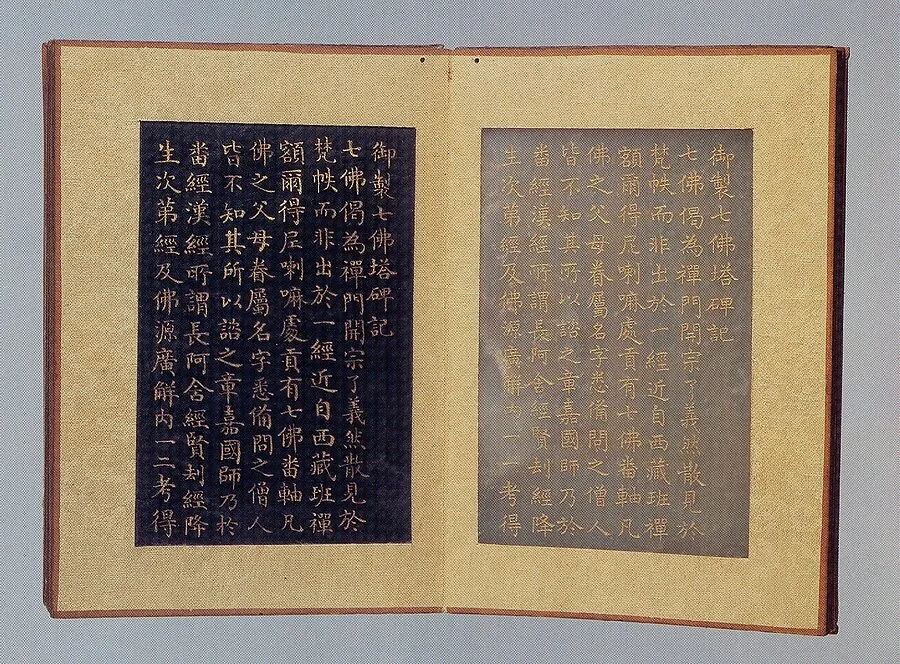 御製七佛塔碑記
七佛偈為禪門開宗了義然散見於
梵帙而非出於一經近自西藏班禪
額爾得尼喇嘛處貢有七佛畨軸凡
佛之父母眷屬名字悉備問之僧人
皆不知其所以諮之章嘉國師乃於
畨經漢經所謂長阿含經賢刦經降
生次第經及佛源廣解内一一考得
御製七佛塔碑記
七佛偈為禪門開宗了義然散見於
梵帙而非出於一經近自西藏班禪
額爾得尼喇嘛處貢有七佛畨軸凡
佛之父母眷屬名字悉備問之僧人
皆不知其所以諮之章嘉國師乃於
畨經漢經所謂長阿含經賢刦經降
生次第經及佛源廣解内一二考得